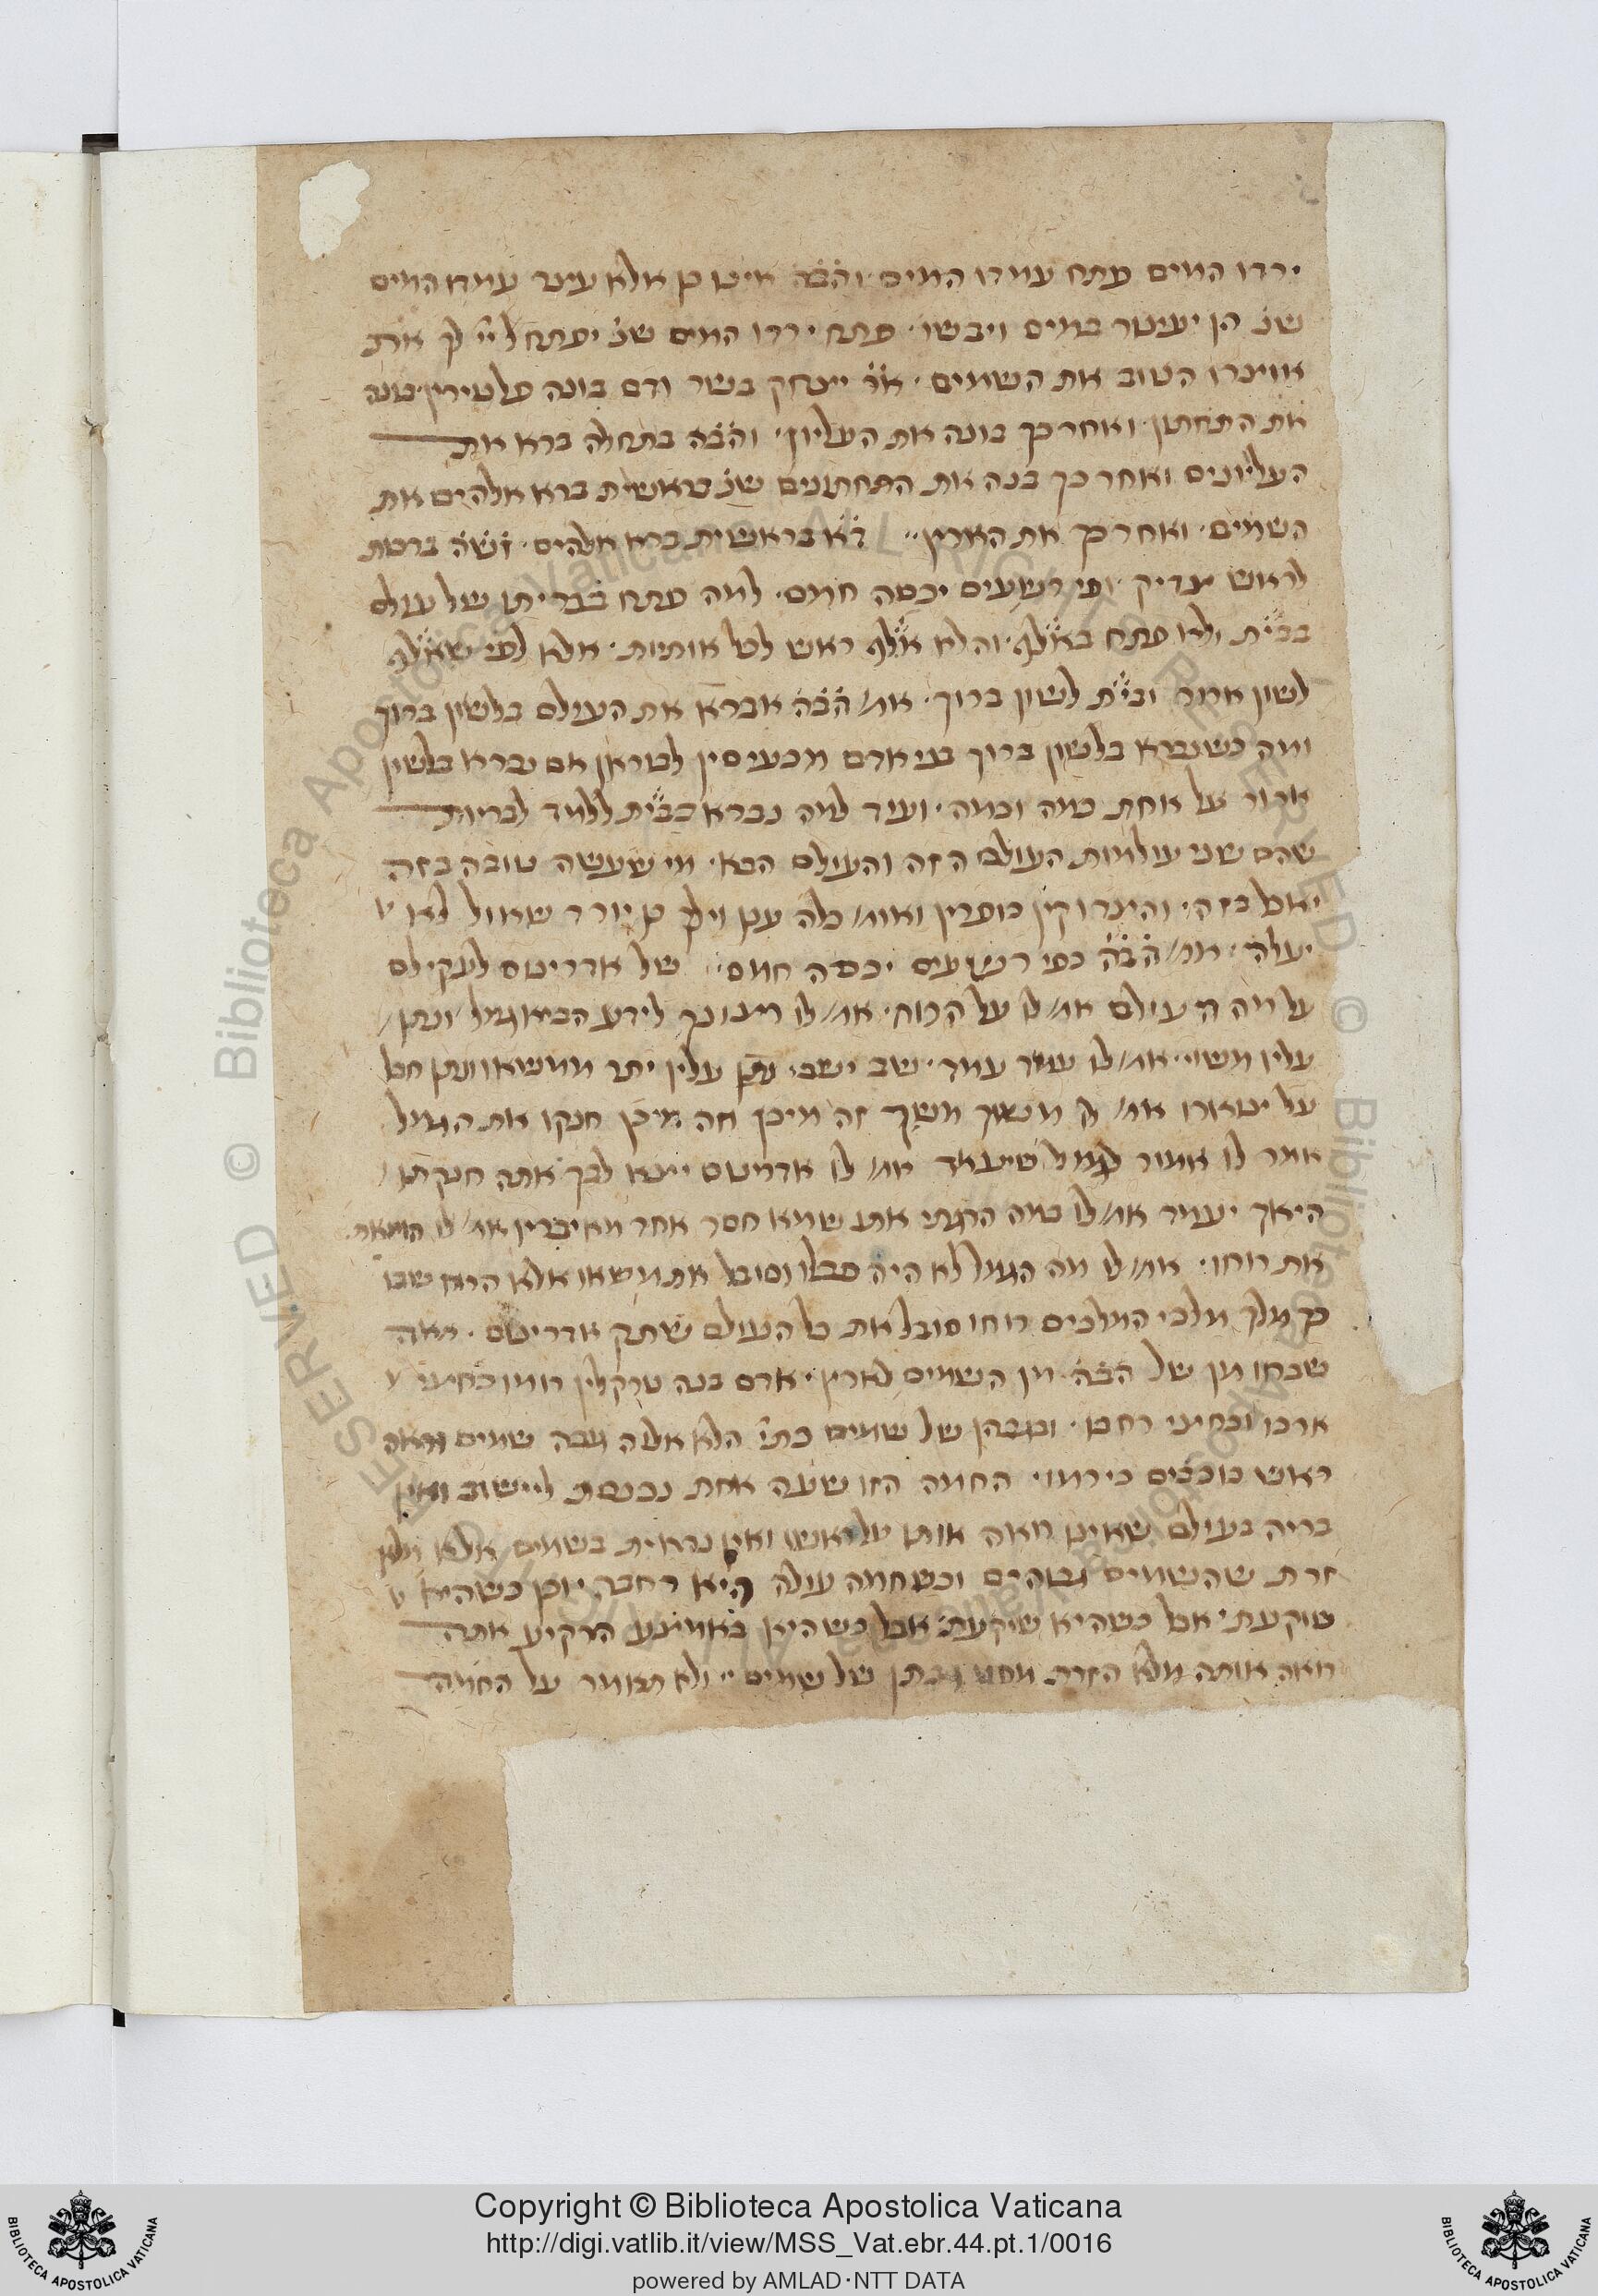 ירדו המים פתח עמדו המים והב̇ה̇ אינו כן אלא עוצר עמדו המים
שנ̇ הן יעצור במים ויבשו פתח ירדו המים שנ̇ יפתח ל̇י̇י̇ לך את
אוצרו הטוב את השמים א̇ר̇ יצחק בשר ודם בונה פלטירין בונה
את התחתון ואחר כך בונה את העליון והב̇ה̇ בתחלה ברא את
העליונים ואחר כך בנה את התחתונים שנ̇ בראשית ברא אלהים את
השמים ואחר כך את הארץ ד̇א̇ בראשית ברא אלהים ז̇ש̇ה̇ ברכות
לראש צדיק ופי רשעים יכסה חמס למה פתח בברייתו של עולם
בבי̈ת ולא פתח באל̈ף והלא אל̈ף ראש לכל אותיות אלא לפי שאל̈ף
לשון ארור ובי̈ת לשון ברוך אמ/ הב̇ה̇ אברא את העולם בלשון ברוך
ומה כשנברא בלשון ברוך בני אדם מכעיסין לבוראן אם נברא בלשון
ארור על אחת כמה וכמה ועוד למה נברא בבי̈ת ללמד לבריות
שהם שני עולמות העולם הזה והעולם הבא מי שעשה טובה בזה
יאכל בזה והצדוקין כופרין ואומ/ כלה ענן וילך כן יורד שאול לא
יעלה אמ/ הב̇ה̇ ופי רשעים יכסה חמס של אדריינוס לעקילס
על מה העולם אמ/ לו על הרוח אמ/ לו רצונך לידע הביא גמל ונתן
עליו משוי אמ/ לו עמוד עמד שב ישב נתן עליו יתר ממשאו ונתן חבל
על צוארו אמ/ לו משוך משך זה מיכן וזה מיכן חנקו את הגמל
אמר לו אמור לגמל שיעמד אמ/ לו אדרינוס יצא לבך אתה חנקתו
היאך יעמד אמ/ לו כמה הרגתי אותו שמא חסר אחד מאיבריו אמ/ לו הוצאת
את רוחו אמ/ לו מה הגמל לא היה סובלו וסובל את משאו אלא הרוח שבו
כך מלך מלכי המלכים רוחו סובל את כל העולם שתק אדריינוס ראה
שבחו של הב̇ה̇ מן השמים לארץ אדם בנה טרקלין רומו כחצי
ארכו וכחצי רחבו וגבהן של שמים כת̇י̇ הלא אלוה גבה שמים וראה
ראש כוכבים כי רמו החמה הזו שעה אחת נכנסת ליישוב ואין
בריה בעולם שאינו רואה אותו על ראשו ואין נראית בשמים אלא מלא
זרת שהשמים גבוהים וכשחמה עולה היא רחבה וכן כשהיא
שוקעת אבל כשהיא באמצע הרקיע אתה
רואה אותה מלא הזרת מפני גבהן של שמים ולא תאמר על החמה
Copyright © Biblioteca Apostolica Vaticana
http://digi.vatlib.it/view/MSS_Vat.ebr.44.pt.1/0016
powered by AMLAD·NTT DATA